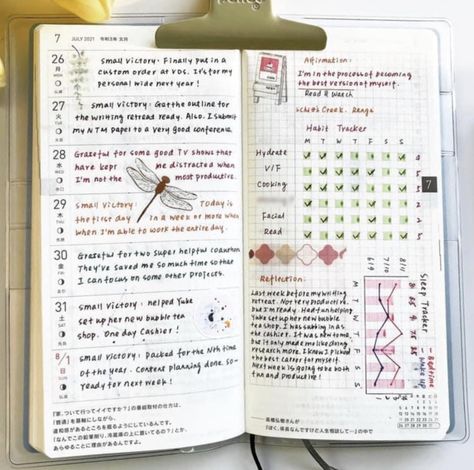 7 JULY 2021 令和3年 文月
26
月
small victory: Finally put in a
custom order at VDS. It's for my
personal wide next year!
27
火
small victory: Got the outline for
the writing retread ready. Also. I submit
my NTM paper to a very good conference.
28
水
Grateful for some good TV shows that
have kept me distracted when
I'm not the most productive.
29
木
small victory: Today is
the first day in a week or more when
when I'm able to work the entire day.
30
金
Grateful for two super helpful coauthors
They've saved me so much time so that
I can focus on some other projects.
31
土
small victory: helped Yuke
set up her new bubble tea
shop. One day Cashier!
8/1
日
small victory: Packed for the Nth time
of the year. Content planning done. So
Ready for next week!
「家、ついて行ってイイですか?」の番組取材の仕方は、
Affirmation:
I'm in the process of becoming
the best version of myself.
Read & Watch
Schitt's Creek.
Habit Tracker
M T W T F S S
Hydrate
V/F
Cooking
Facial
Read
7
Reflection:
Last week before my writing
retreat. Not very productive.
but I'm ready. Had fun helping
Yuke set up her new bubble
tea shop. I was subbing in as
the cashier. It was awesome,
but it only made me like doing
research more. I know I picked
the best career for myself.
Next week is going to be both
fun and productive!
Sleep Tracker
Bedtime
wake up
M T W T F S S